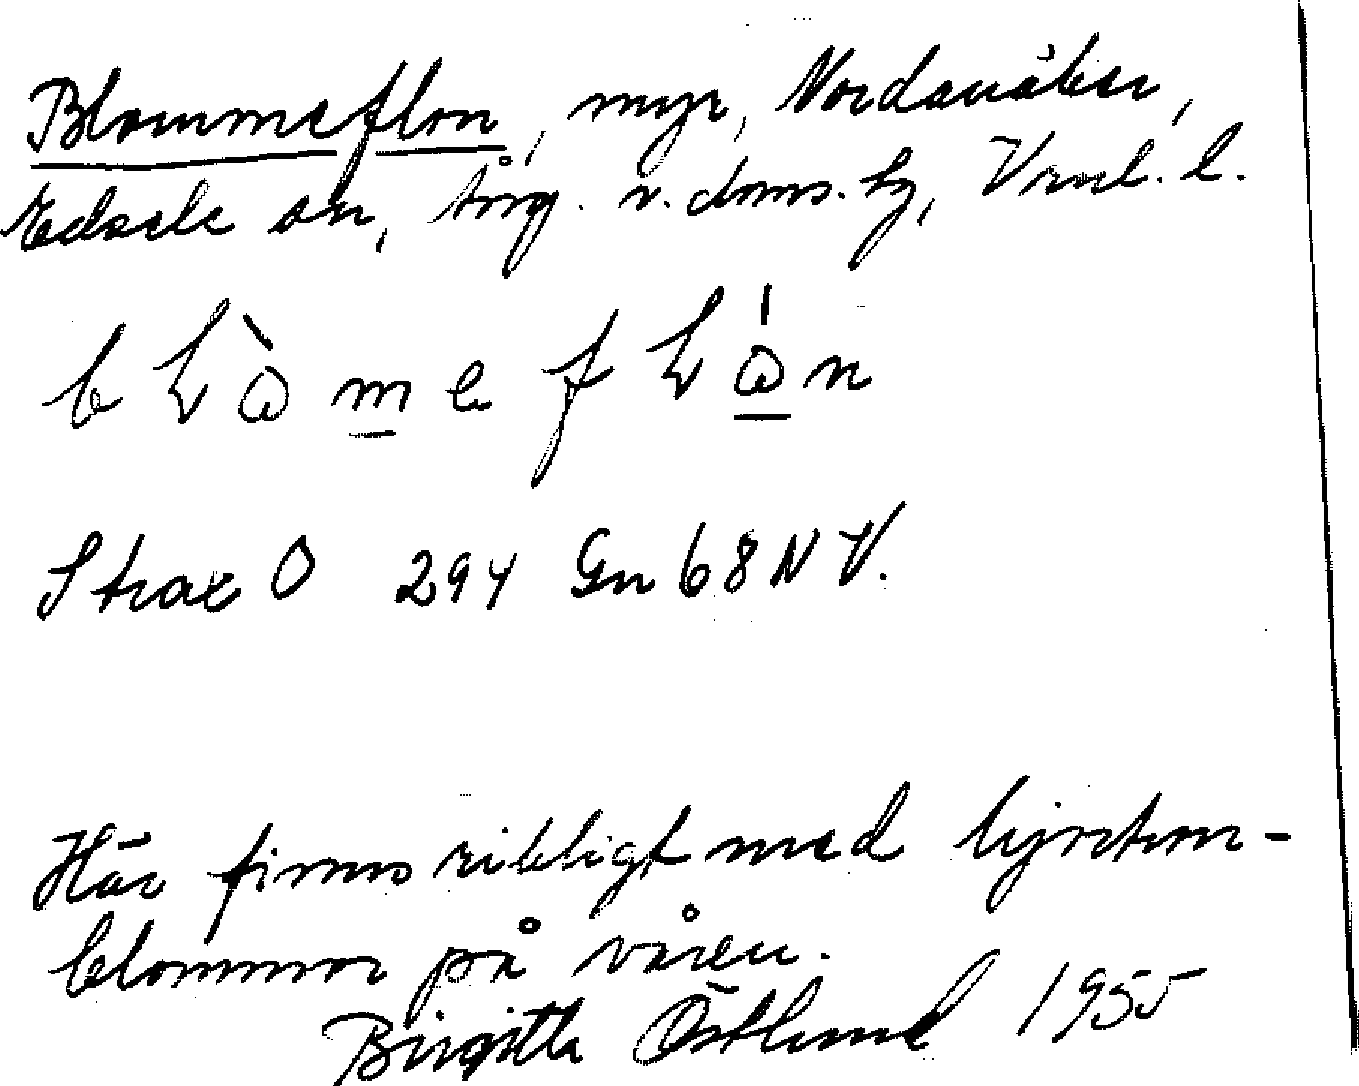 Blommeflon, myr, Nordanåker,
Edsele sn, Ång. v. doms. hg, Vrnl. l.
Strax O 294 Gn 68 NV.
Här finns rikligt med hjortron-
blommor på våren.
Birgitta Östlund 1955